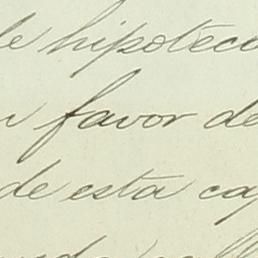 de hipoteca
favor de
de esta ca